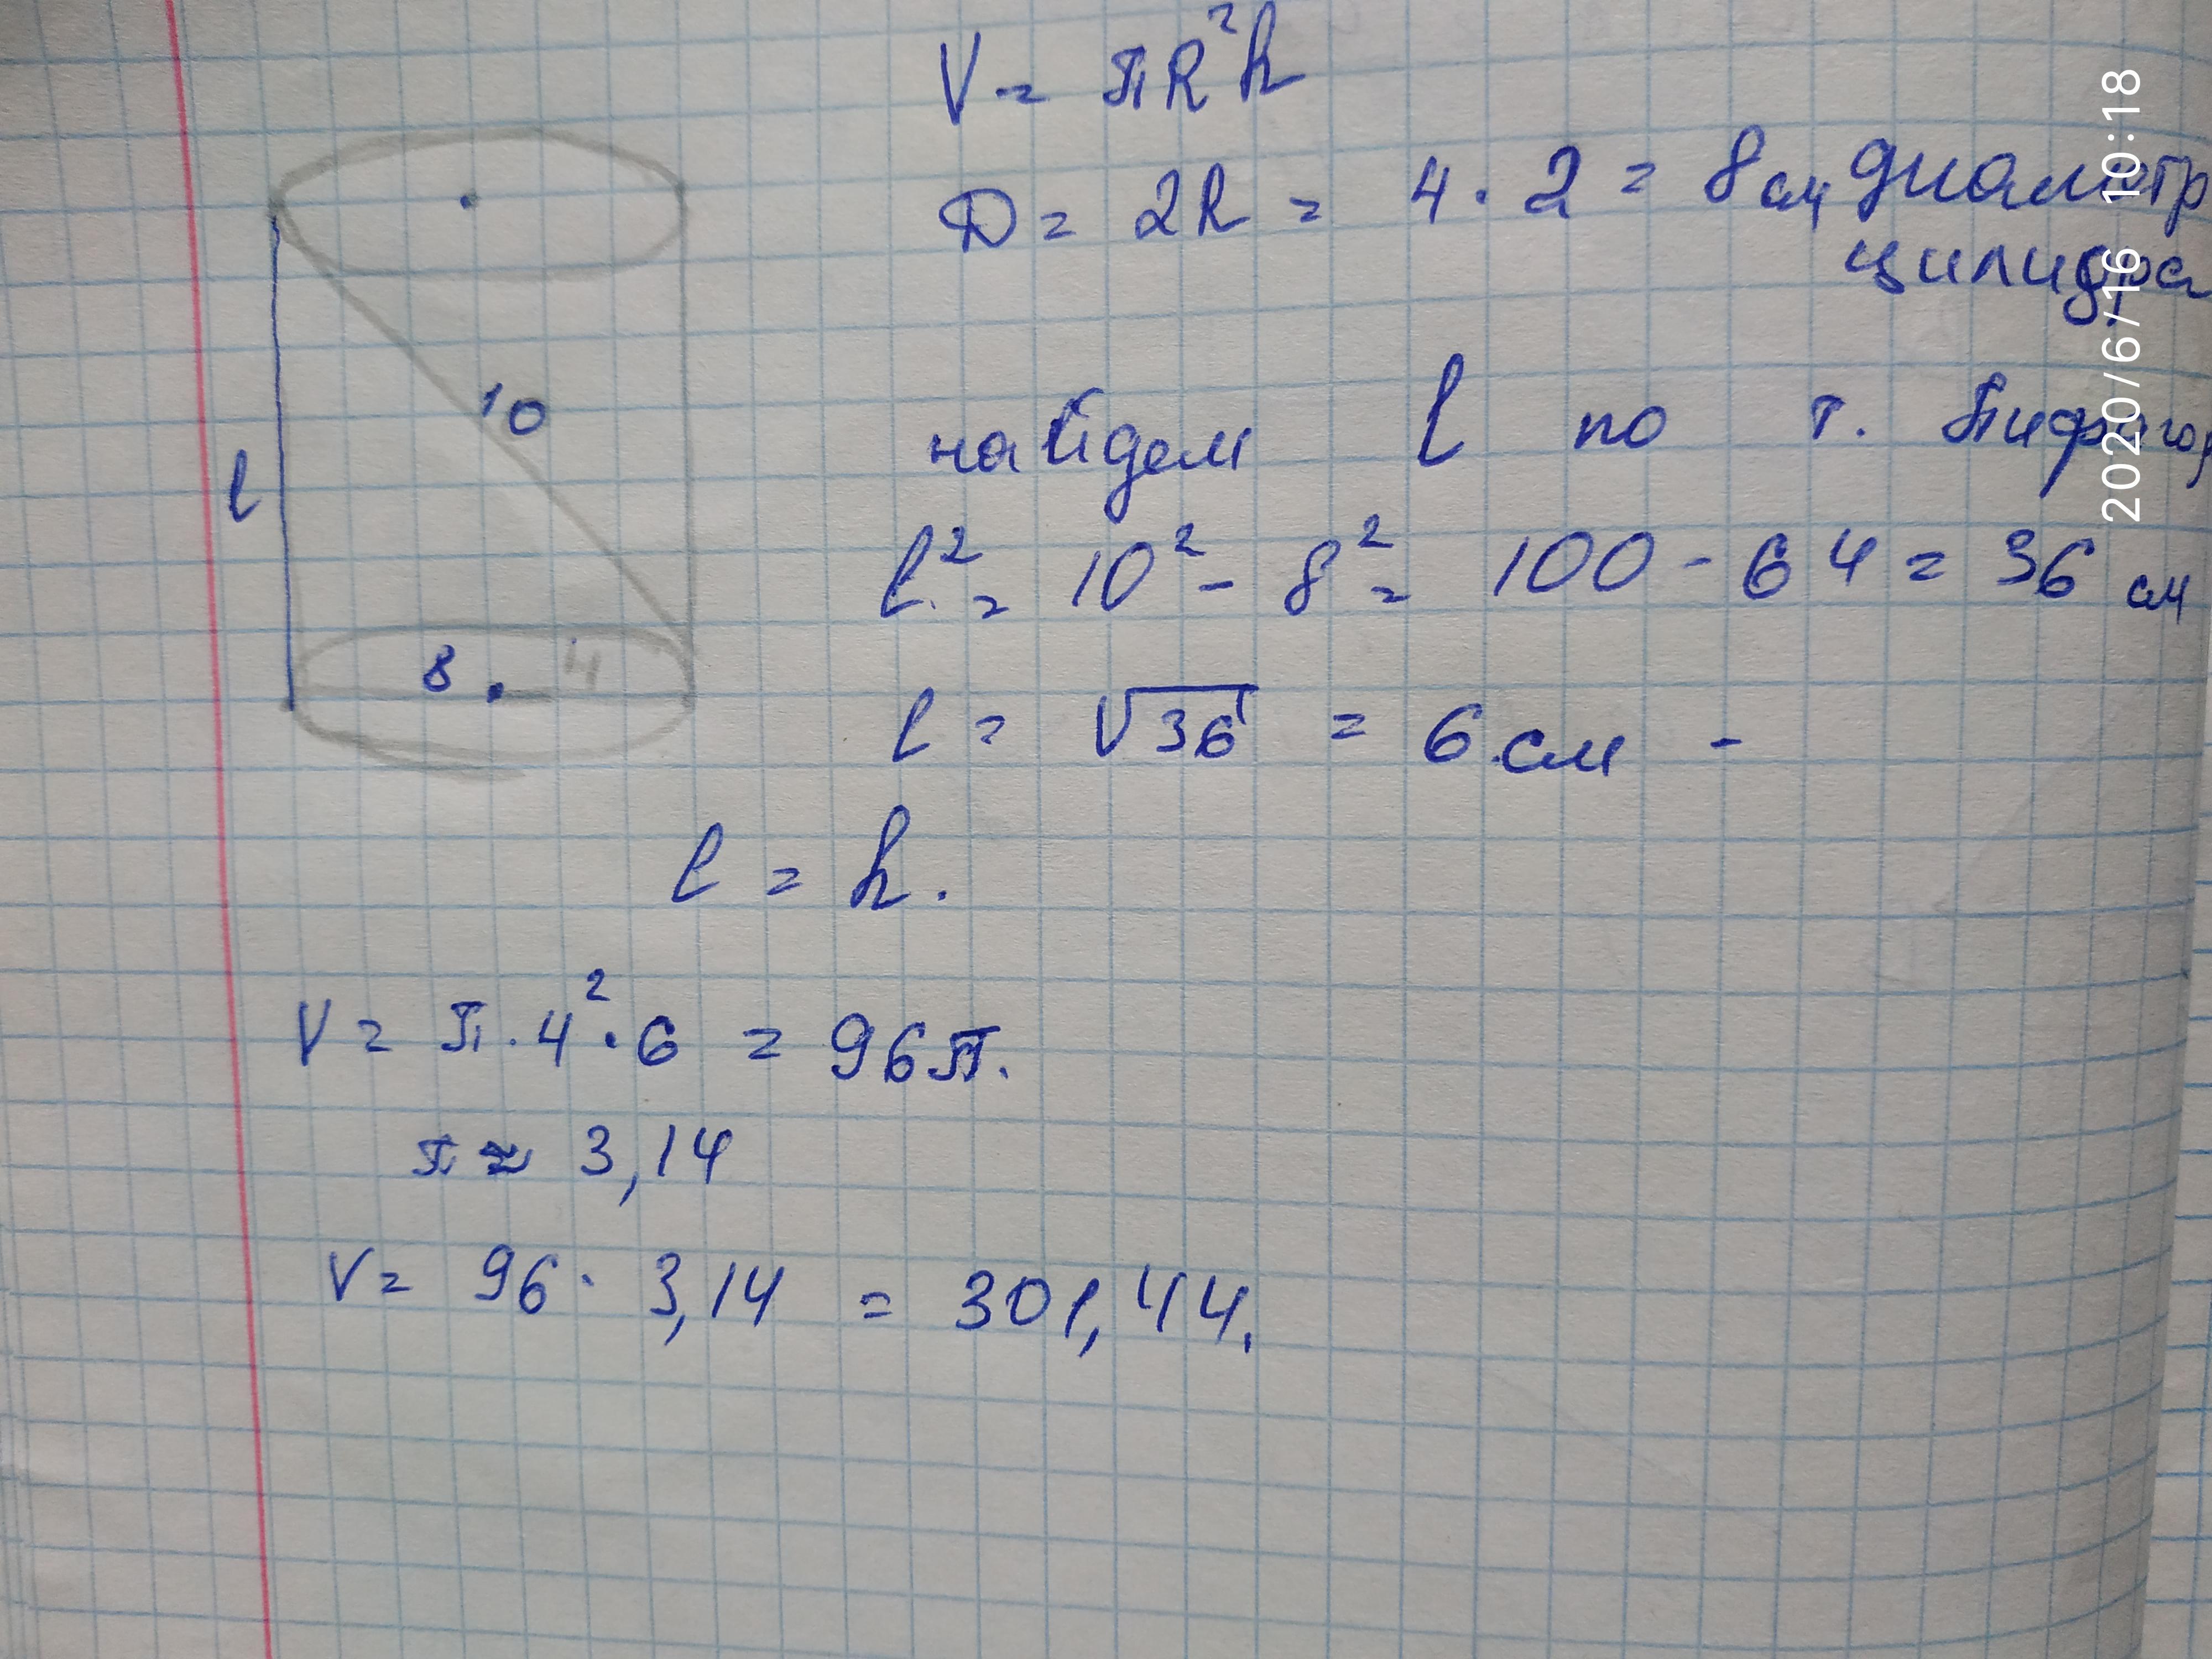 V = πR²h
D = 2R = 4 · 2 = 8 см диаметр
цилидра
найдем l по т. Пифагор
l² = 10² - 8² = 100 - 64 = 36 см
l = √36 = 6 см -
l = h.
V = π · 4² · 6 = 96π.
π ≈ 3,14
V = 96 · 3,14 = 301,44.
10
l
8 4
2020/6/16 10:18